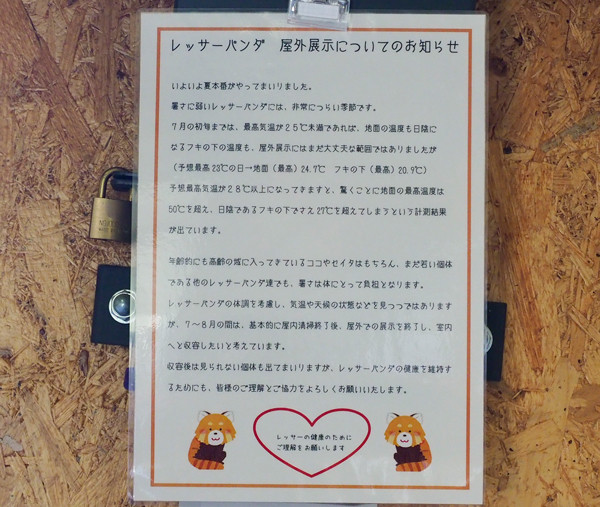 レッサーパンダ　屋外展示についてのお知らせ
いよいよ夏本番がやってまいりました。
暑さに弱いレッサーパンダには、非常につらい季節です。
7月の初旬までは、最高気温が25℃未満であれば、地面の温度も日陰に
なるフキの下の温度も、屋外展示にはまだ大丈夫な範囲ではありましたが
（予想最高23℃の日→地面（最高）24.7℃　フキの下（最高）20.9℃）
予想最高気温が28℃以上になってきますと、驚くことに地面の最高温度は
50℃を超え、日陰であるフキの下でさえ27℃を超えてしまうという計測結果
が出ています。
年齢的にも高齢の域に入ってきているココやセイタはもちろん、まだ若い個体
である他のレッサーパンダ達でも、暑さは体にとって負担となります。
レッサーパンダの体調を考慮し、気温や天候の状態などを見つつではあります
が、7～8月の間は、基本的に屋内清掃終了後、屋外での展示を終了し、室内
へと収容したいと考えています。
収容後は見られない個体も出てまいりますが、レッサーパンダの健康を維持す
るためにも、皆様のご理解とご協力をよろしくお願いいたします。
レッサーの健康のために
ご理解をお願いします